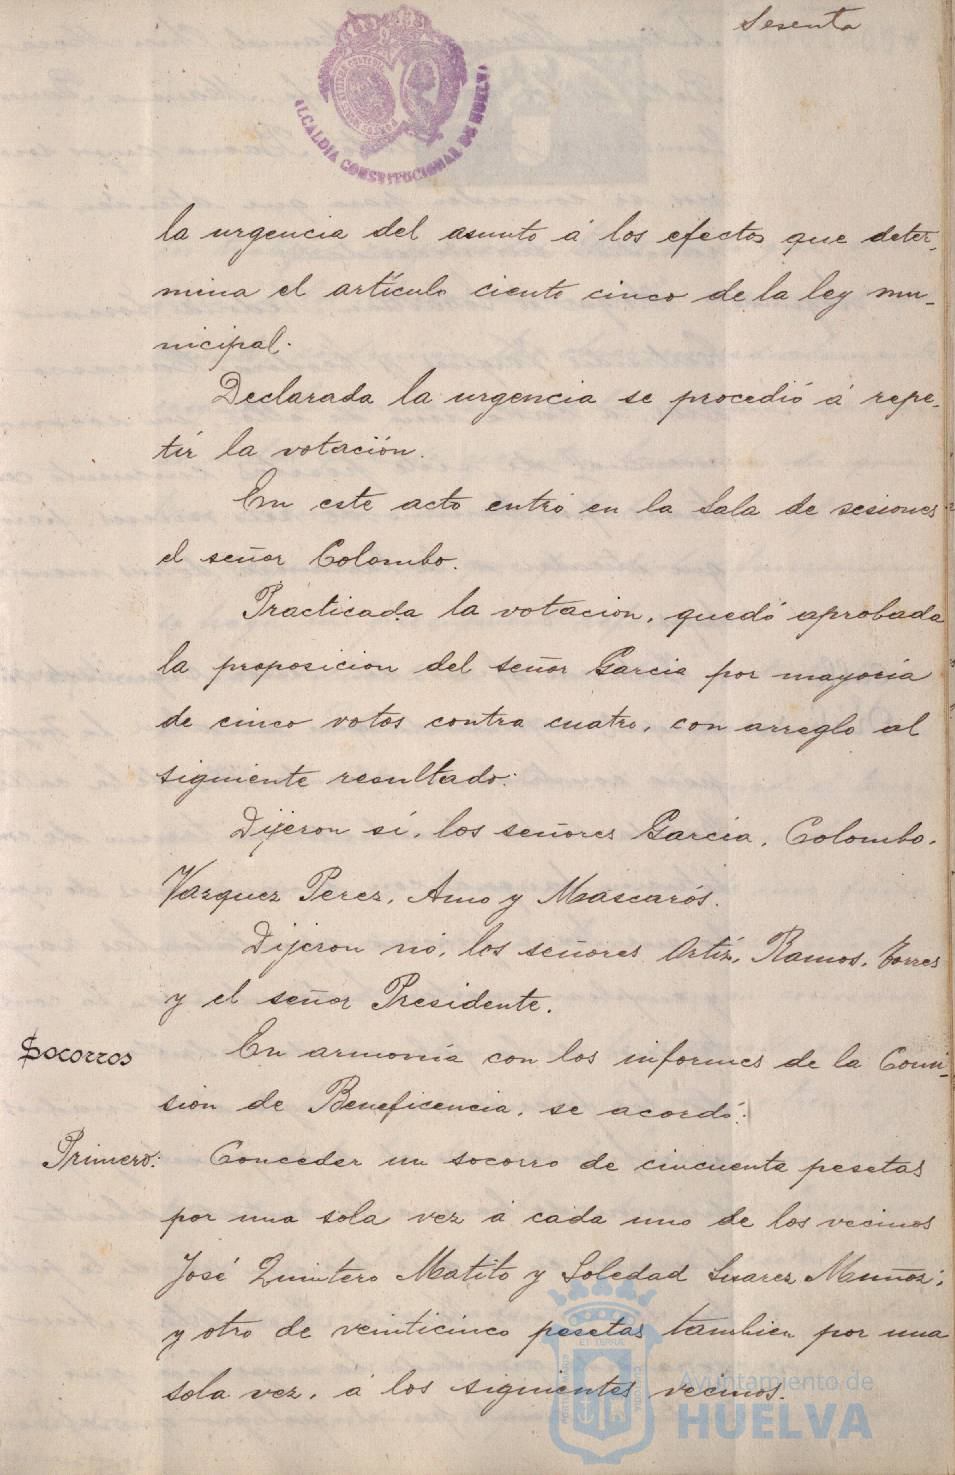 Sesenta
ALCALDIA CONSTITUCIONAL DE HUELVA
la urgencia del asunto á los efectos que deter-
mina el artículo ciento cinco de la ley mu-
nicipal.
Declarada la urgencia se procedió á repe-
tir la votación.
En este acto entró en la Sala de sesiones
el señor Colombo.
Practicada la votacion, quedó aprobada
la proposicion del señor Garcia por mayoria
de cinco votos contra cuatro, con arreglo al
siguiente resultado:
Dijeron sí, los señores García, Colombo,
Vazquez Perez, Amo y Mascarós.
Dijeron nó, los señores Ortíz, Ramos, Torres
y el señor Presidente.
Socorros
En armonía con los informes de la Comi-
sion de Beneficencia, se acordó:
Primero: Conceder un socorro de cincuenta pesetas
por una sola vez á cada uno de los vecinos
José Quintero Matito y Soledad Suarez Muñoz;
y otro de veinticinco pesetas tambien por una
sola vez, á los siguientes vecinos.
Ayuntamiento de
HUELVA